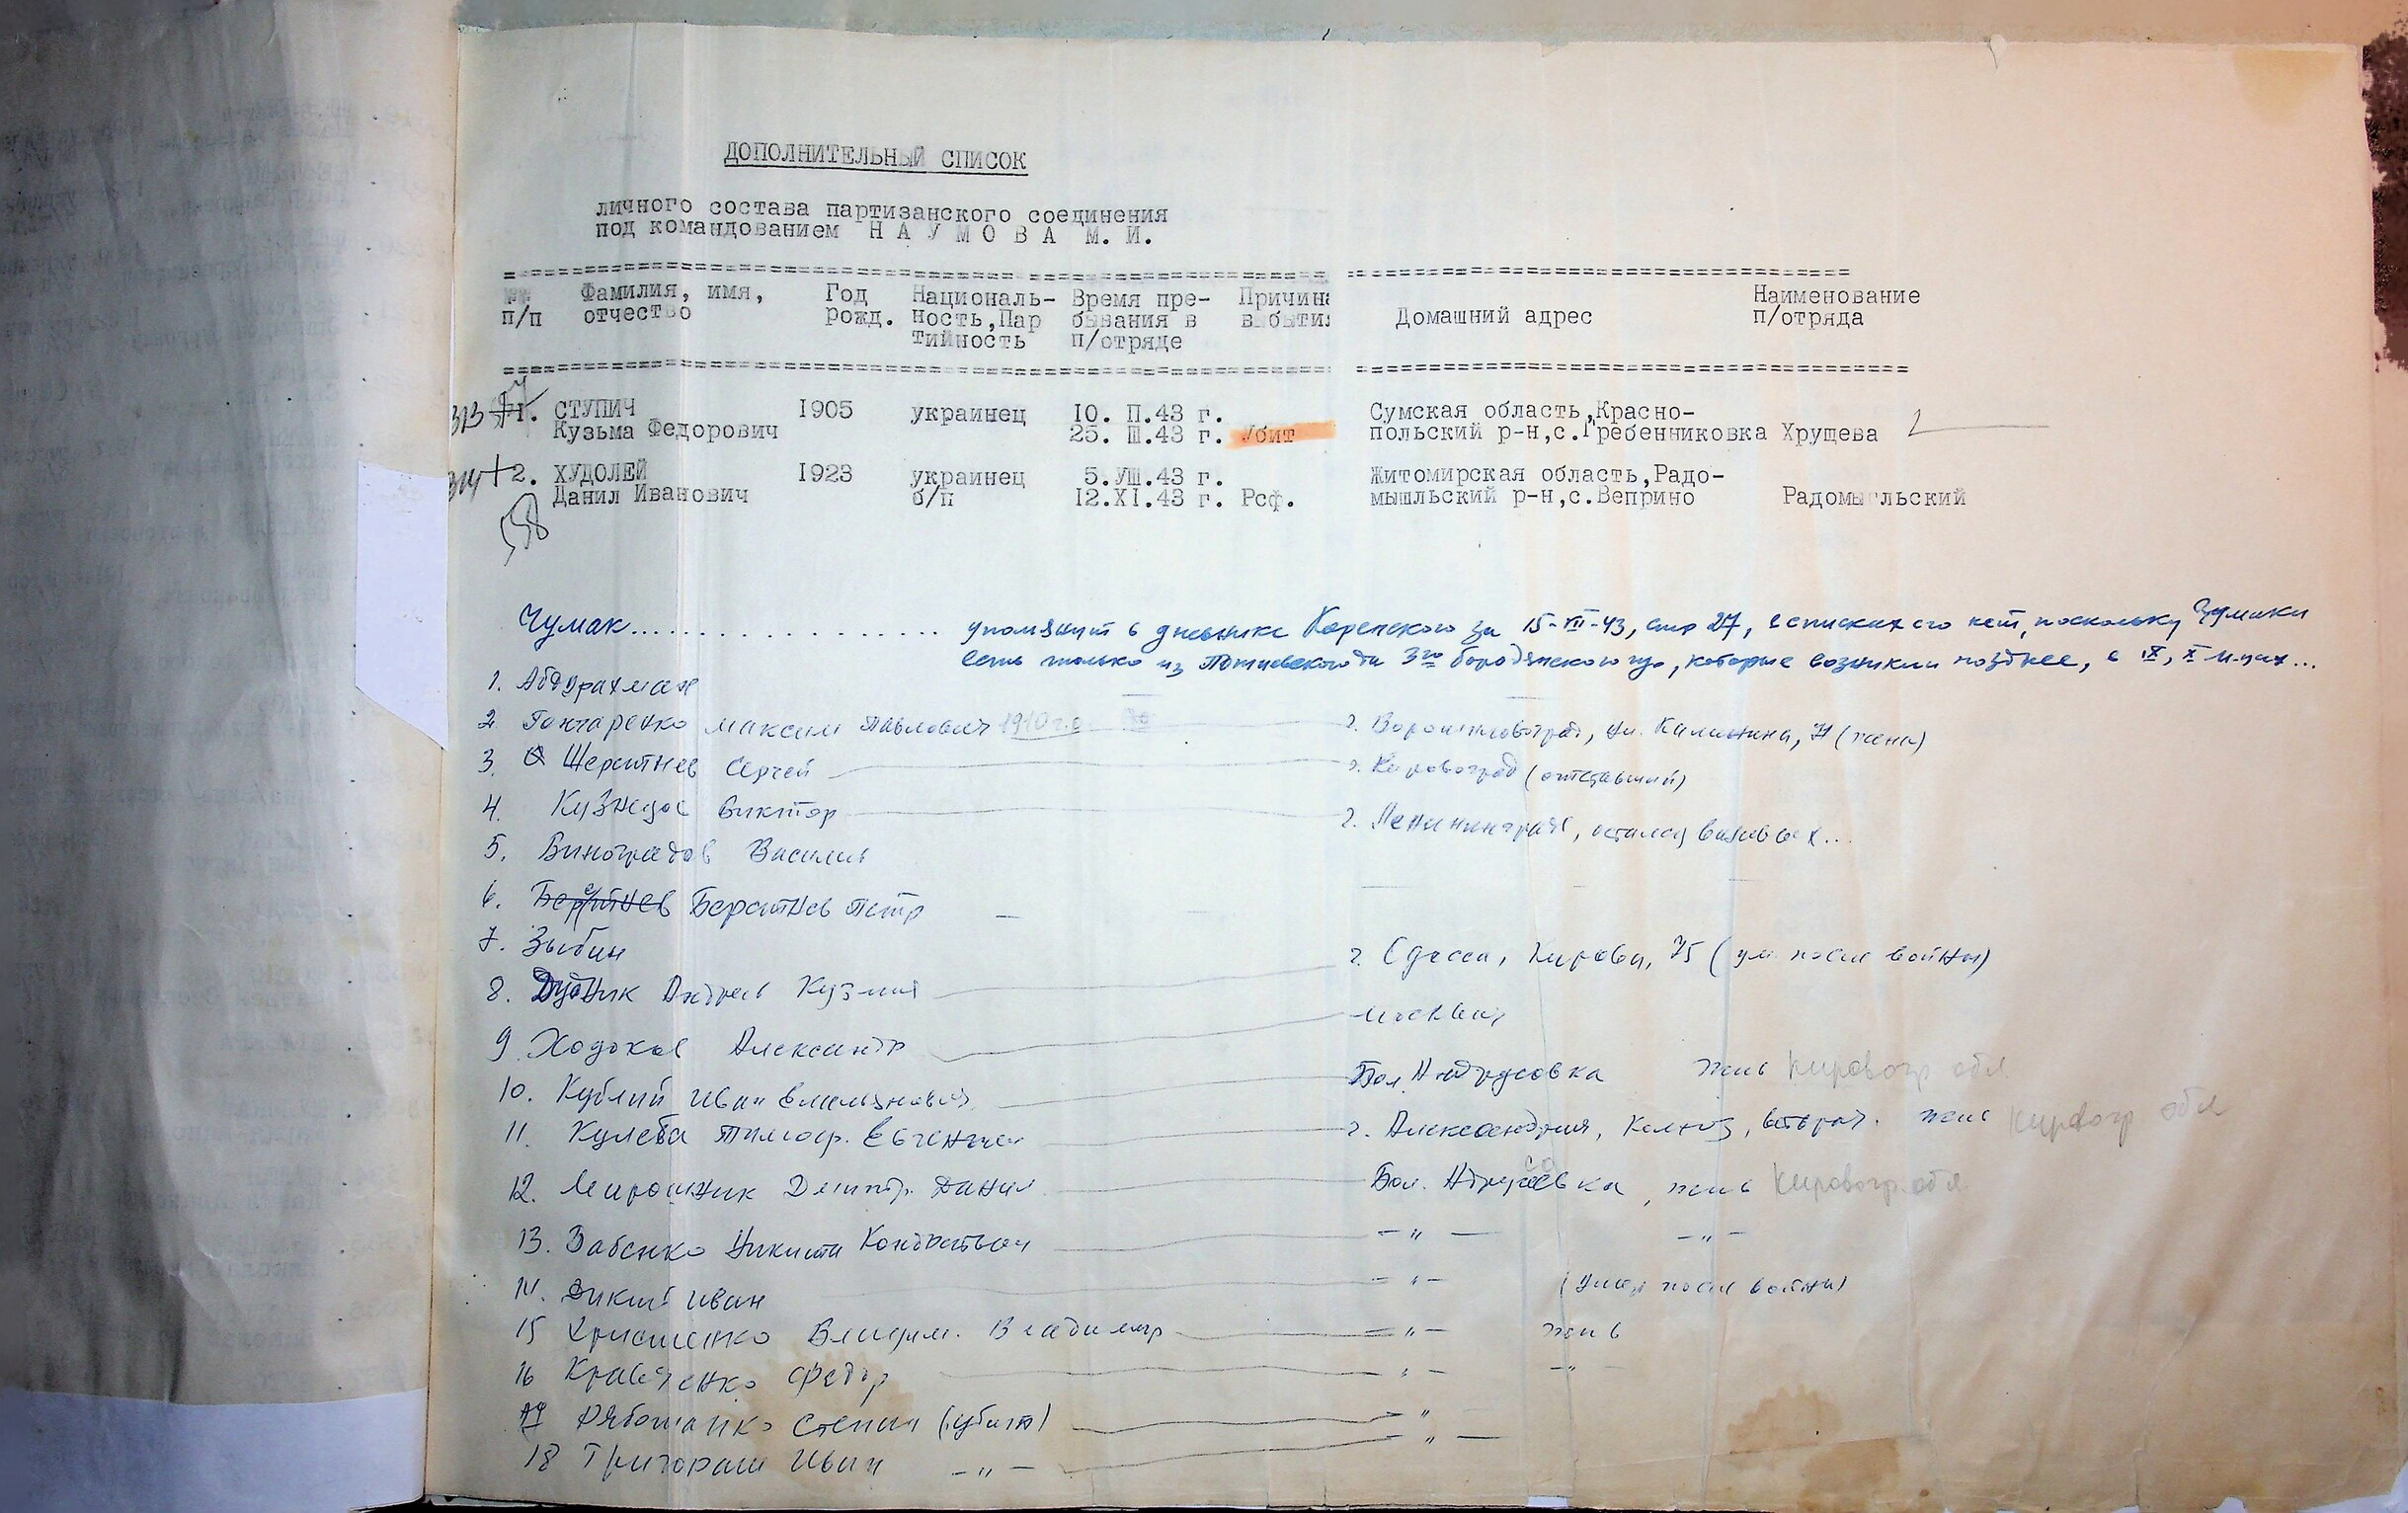 ДОПОЛНИТЕЛЬНЫЙ СПИСОК
личного состава партизанского соединения
под командованием Н А У М О В А М. И.
п/п Фамилия, имя, отчество Год рожд. Националь-ность,Пар тийность Время пре-бывания в п/отряде Причина выбытия Домашний адрес Наименование п/отряда
313 1. СТУПИЧ 1905 украинец 10. П.43 г. Сумская область,Красно-
Кузьма Федорович 25. Ш.43 г. Убит польский р-н,с.Гребенниковка Хрущева
314 +2. ХУДОЛЕЙ 1923 украинец 5.УШ.43 г. Житомирская область,Радо-
Данил Иванович б/п 12.XI.43 г. Рсф. мышльский р-н,с.Веприно Радомысльский
Чумак.................. упомянут в дневнике за 15-VII-43, стр 27, в списках его нет, поскольку Чумаки
есть только из 3го бородянского п/о, которые возникли позднее, в IX, X м-цах...
1. Абдурахман
2 Гончаренко Максим Павлович 1910 г.р. г. Ворошиловград, ул. Калинина, (жена)
3. Шерстнев Сергей г. Кировоград (отставший)
4. Кузнецов Виктор г. Ленинград, остался в живых...
5. Виноградов Василий
6. Берстнев Петр —
7. Зыбин
8. Андрей Кузьмич г. Одесса, Кирова, 75 (ум. после войны)
9. Ходаков Александр москвич
10. Кублий Иван Емельянович Бол. Андрусовка жив Кировогр обл
11. Кулеба Тимоф. Евгеньев г. Александрия, жив Кировогр обл
12. Мирошник Дмитр. Данил Бол. Андрусовка, жив Кировогр. обл
13. Бабенко Никита Кондратьевич — " — — " —
14. Дикий Иван — " — (умер после войны)
15 Владимир — " — жив
16 Кравченко Федор — " — — " —
17 Степан (убит) — " —
18 Григораш Иван — " — — " —